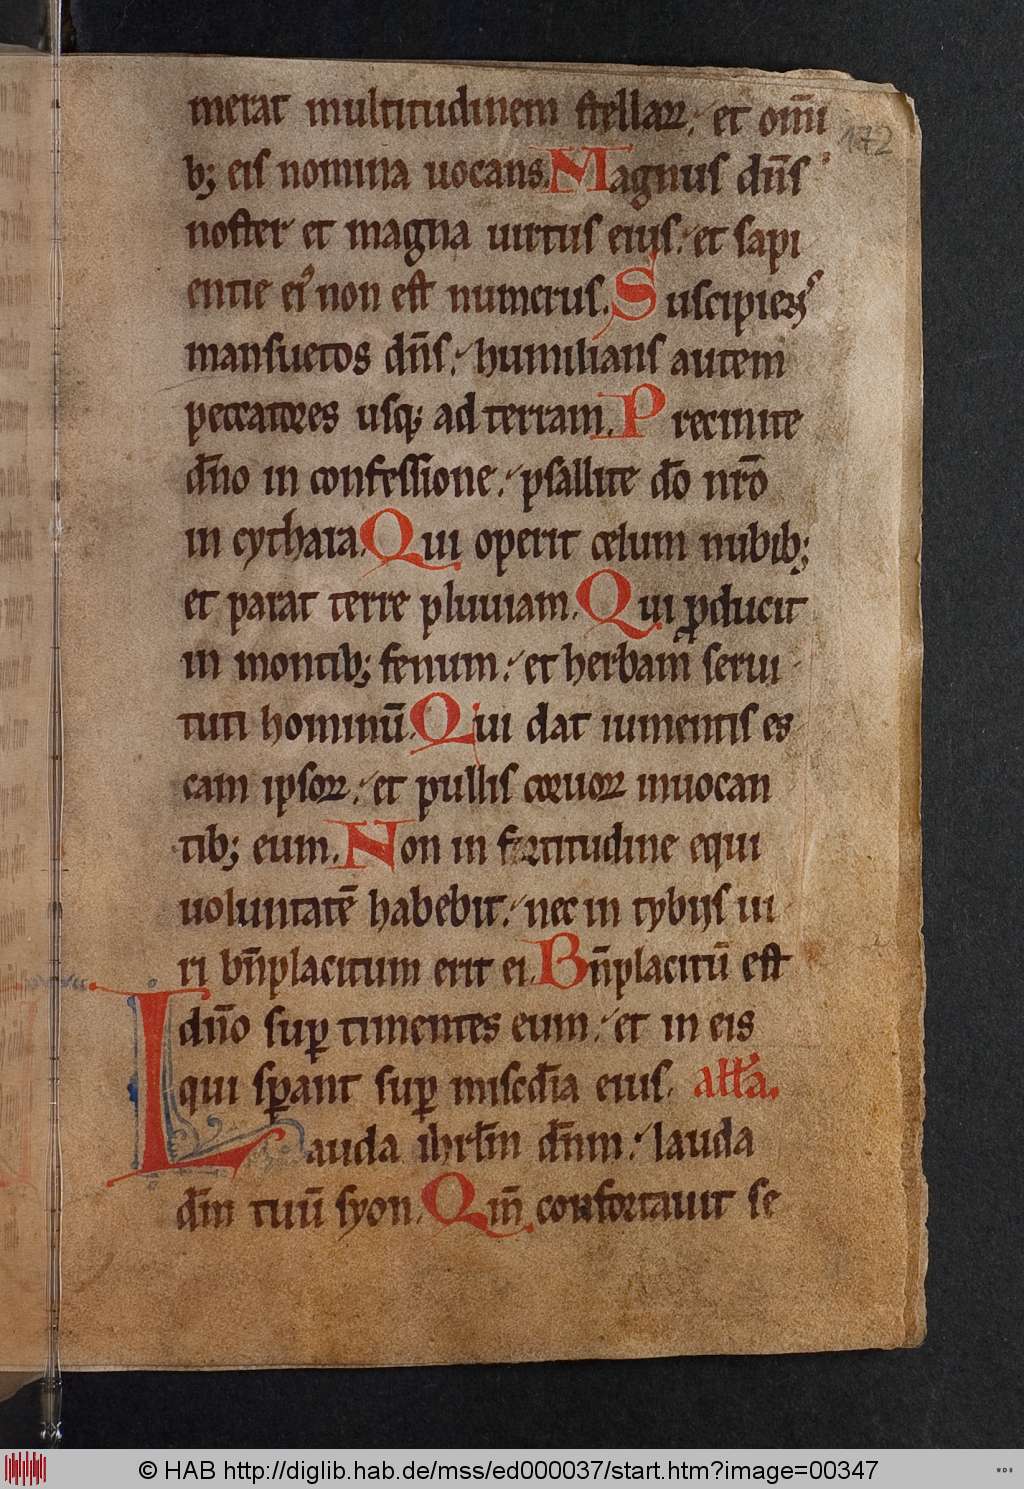 merat multitudinem stellaꝝ. et om̄i
bꝫ eis nomina uocans. Magnus dn̄s
noster et magna uirtus eius. et sapi
entie ei᾽ non est numerus. Suscipiens
mansuetos dn̄s. humilians autem
peccatores usqꝫ ad terram. Precinite
dn̄o in confessione. psallite dō nr̄o
in cythara. Qui operit celum nubibꝫ
et parat terre pluuiam. Qui ꝓducit
in montibꝫ fenum. et herbam serui
tuti hominū. Qui dat iumentis es
cam ipsoꝝ. et pullis coruoꝝ inuocan
tibꝫ eum. Non in fortitudine equi
uoluntatē habebit. nec in tybijs ui
ri bn̄placitum erit ei. Bn̄placitū est
dn̄o suꝑ timentes eum. et in eis
qui sꝑant suꝑ mis̄cdia eius. all̄a.
Lauda ihrl̄m dn̄m. lauda
dm̄ tuū syon. Qm̄ confortauit se
172
© HAB http://diglib.hab.de/mss/ed000037/start.htm?image=00347